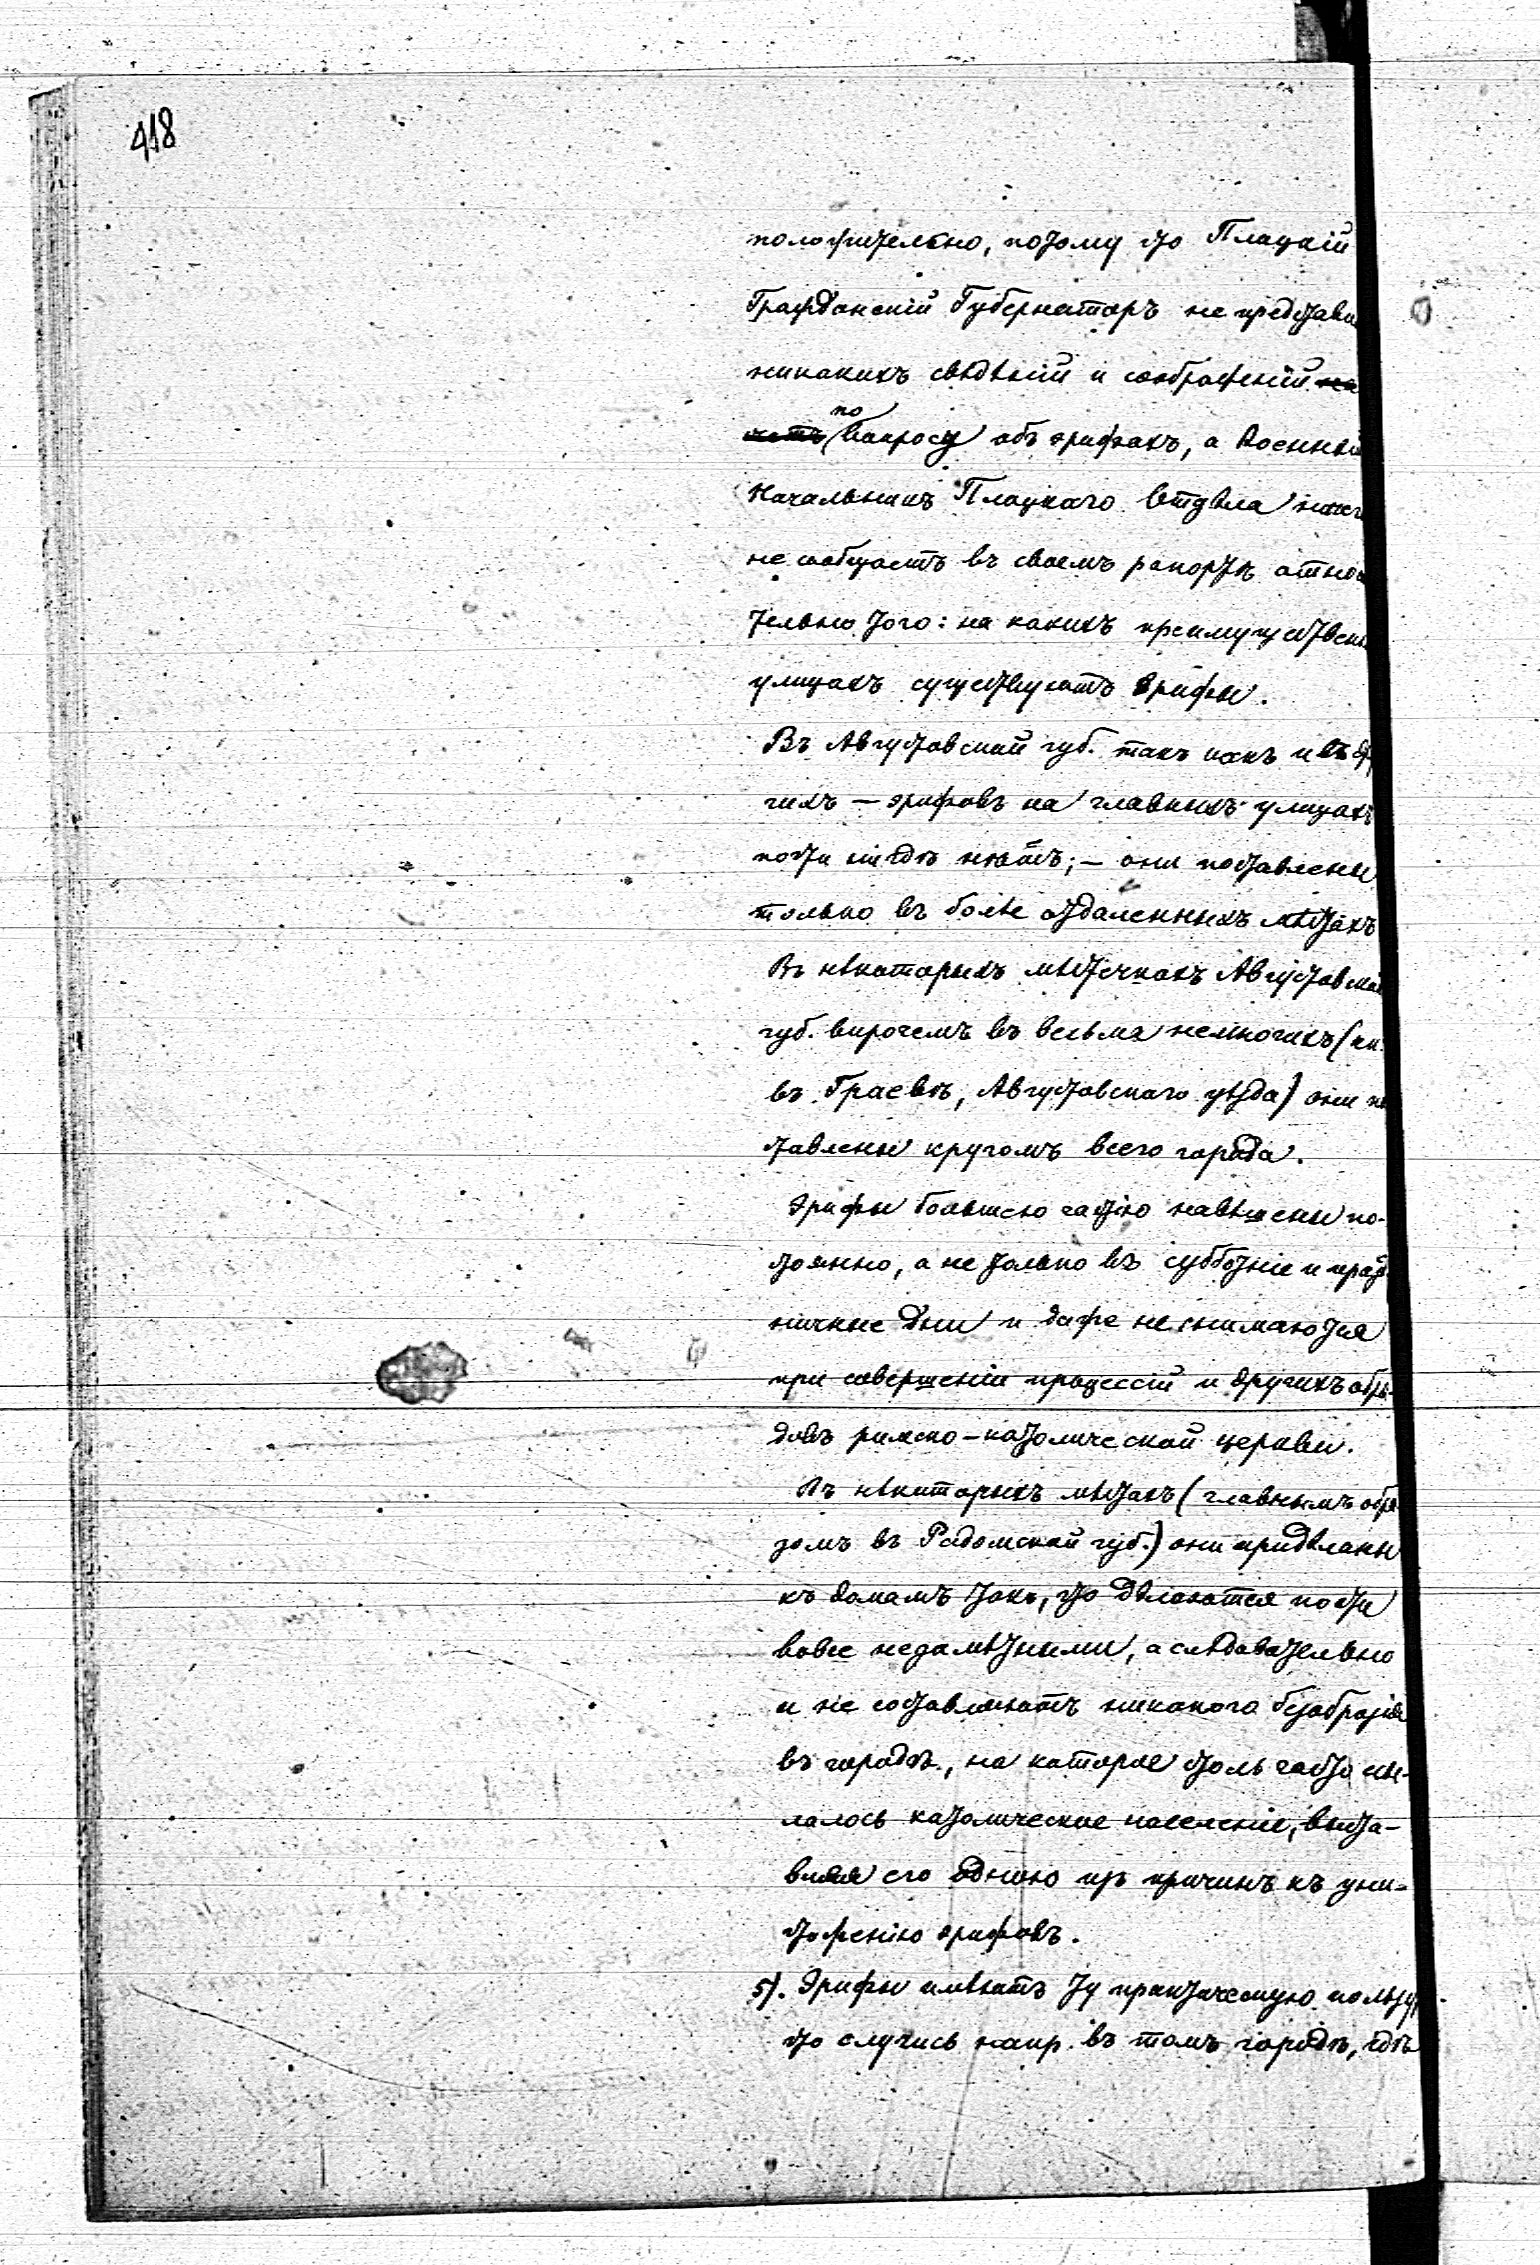 418
положительно, потому что Плоцкій
Гражданскій Губернаторъ не представи
никакихъ свѣдѣній и соображеній на
счетъ по вопросу объ эрифахъ, а Военный
Начальникъ Плоцкаго Отдѣла ничег
не сообщаетъ въ своемъ рапортѣ относи
тельно того: на какихъ преимуществен
улицахъ существуютъ эрифы.
Въ Августовской губ. такъ какъ и въ др
гихъ — эрифовъ на главныхъ улицахъ
почти нигдѣ нѣтъ; — они поставлены
только въ болѣе отдаленныхъ мѣстахъ
Въ нѣкоторыхъ мѣстечкахъ Августовской
губ. впрочемъ въ весьма немногихъ (нп.
въ Граевѣ, Августовскаго уѣзда) они по
ставлены кругомъ всего города.
Эрифы большею частію навѣшены по-
стоянно, а не только въ субботніе и празд
ничные дни и даже не снимаются
при совершеніи процессій и другихъ обря-
довъ римско-католической церкви.
Въ нѣкоторыхъ мѣстахъ (главнымъ обра
зомъ въ Радомской губ.) они придѣланы
къ домамъ такъ, что дѣлаются почти
вовсе незамѣтными, а слѣдовательно
и не составляютъ никакого безобразія
въ городѣ, на которое столь часто сы-
лалось католическое населеніе, выста-
вляя его одною изъ причинъ къ уни-
чтоженію эрифовъ.
5). Эрифы имѣютъ ту практическую пользу,
что случись напр. въ томъ городѣ, гдѣ